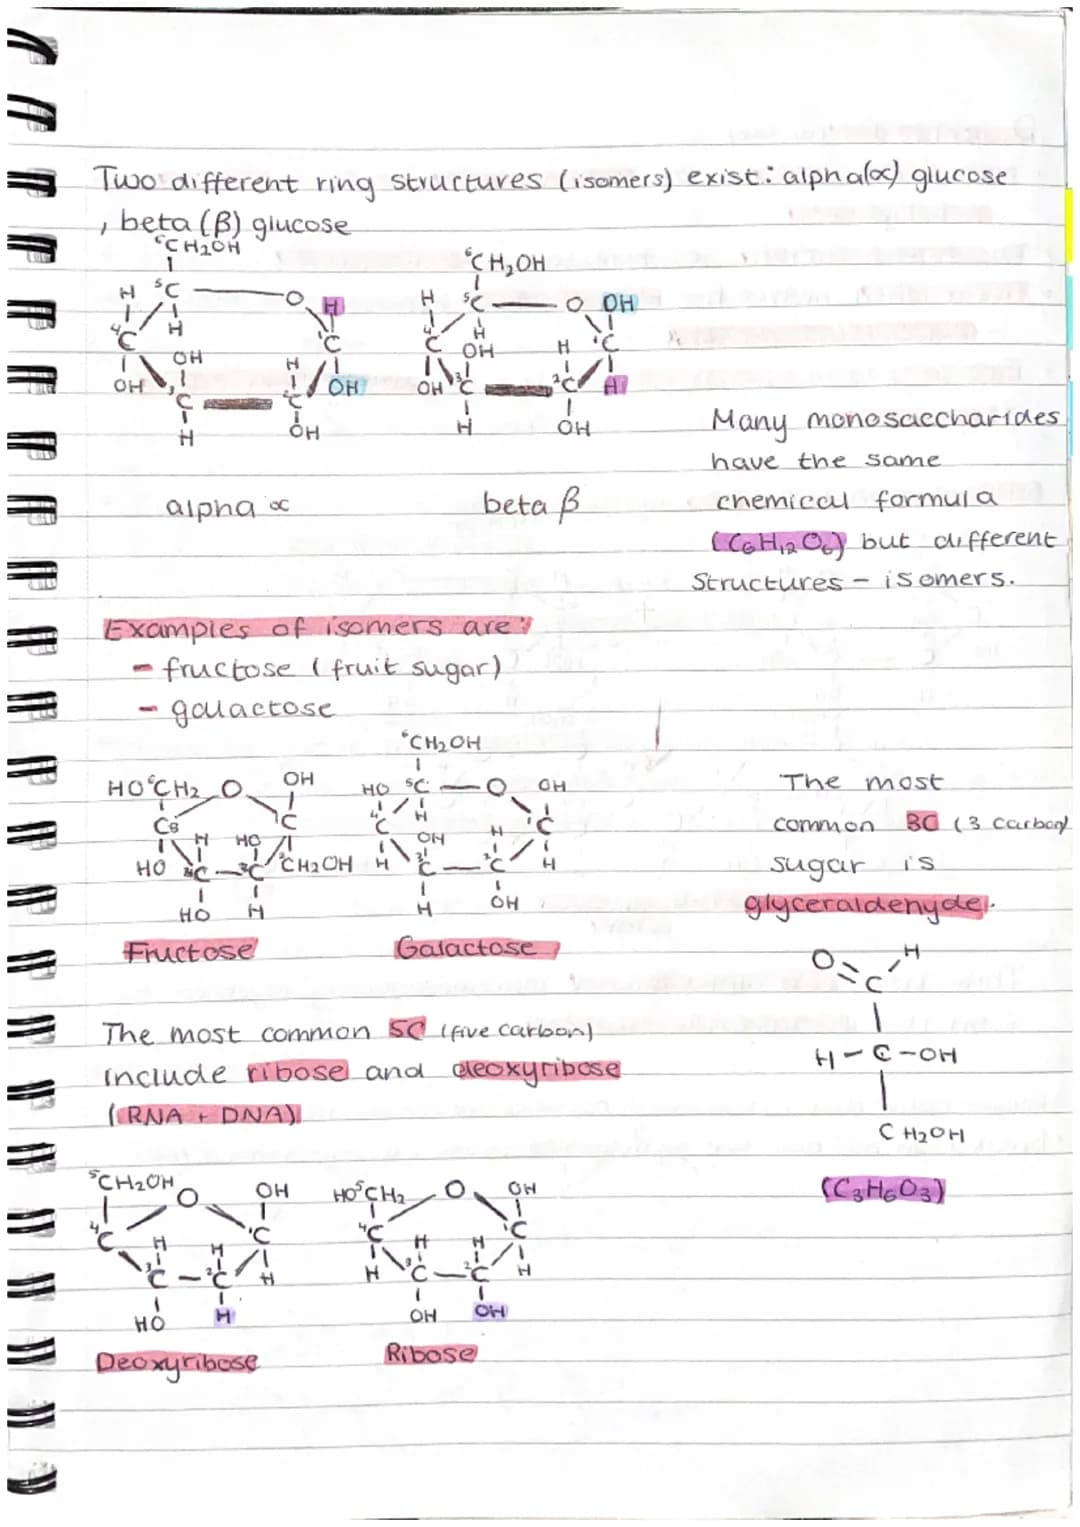 Two different ring structures (isomers) exist: alpha(α) glucose
, beta (β) glucose
⁶CH₂OH
H ⁵C O H
⁴C H ¹C
OH H
OH ³C ²C OH
H OH
alpha α
⁶CH₂OH
H ⁵C O OH
⁴C H ¹C
OH H
OH ³C ²C H
H OH
beta β
Many monosaccharides
have the same
chemical formula
(C₆H₁₂O₆) but different
Structures - isomers.
Examples of isomers are:
- fructose (fruit sugar)
- galactose
HO⁶CH₂ O OH
C5 C
H HO
HO ⁴C ³C ²CH₂OH
HO H
Fructose
⁶CH₂OH
HO ⁵C O OH
⁴C H ¹C
OH H
H ³C ²C H
H OH
Galactose
The most
common 3C (3 carbon)
sugar is
glyceraldehyde.
O H
C
H - C - OH
CH₂OH
(C₃H₆O₃)
The most common 5C (five carbon)
include ribose and deoxyribose
(RNA + DNA)
⁵CH₂OH O OH
⁴C ¹C
H H
³C ²C H
HO H
Deoxyribose
HO⁵CH₂ O OH
⁴C ¹C
H H
H ³C ²C H
OH OH
Ribose